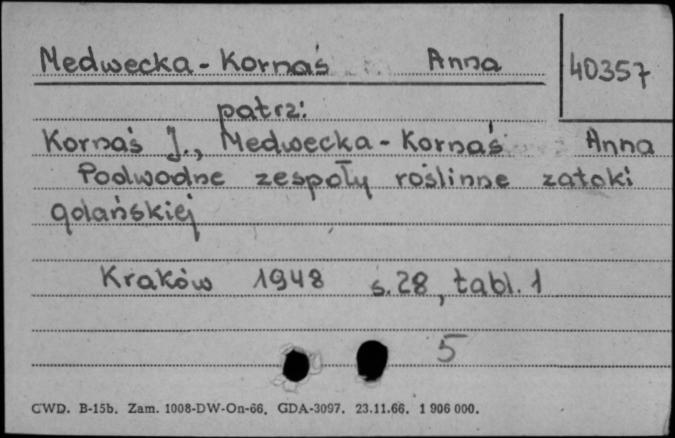 Medwecka-Kornaś Anna
40357
patrz:
Kornaś J., Medwecka-Kornaś Anna
Podwodne zespoły roślinne zatoki
gdańskiej
Kraków 1948 s.28, tabl.1
5
CWD. B-15b. Zam. 1008-DW-On-66. GDA-3097. 23.11.66. 1 906 000.